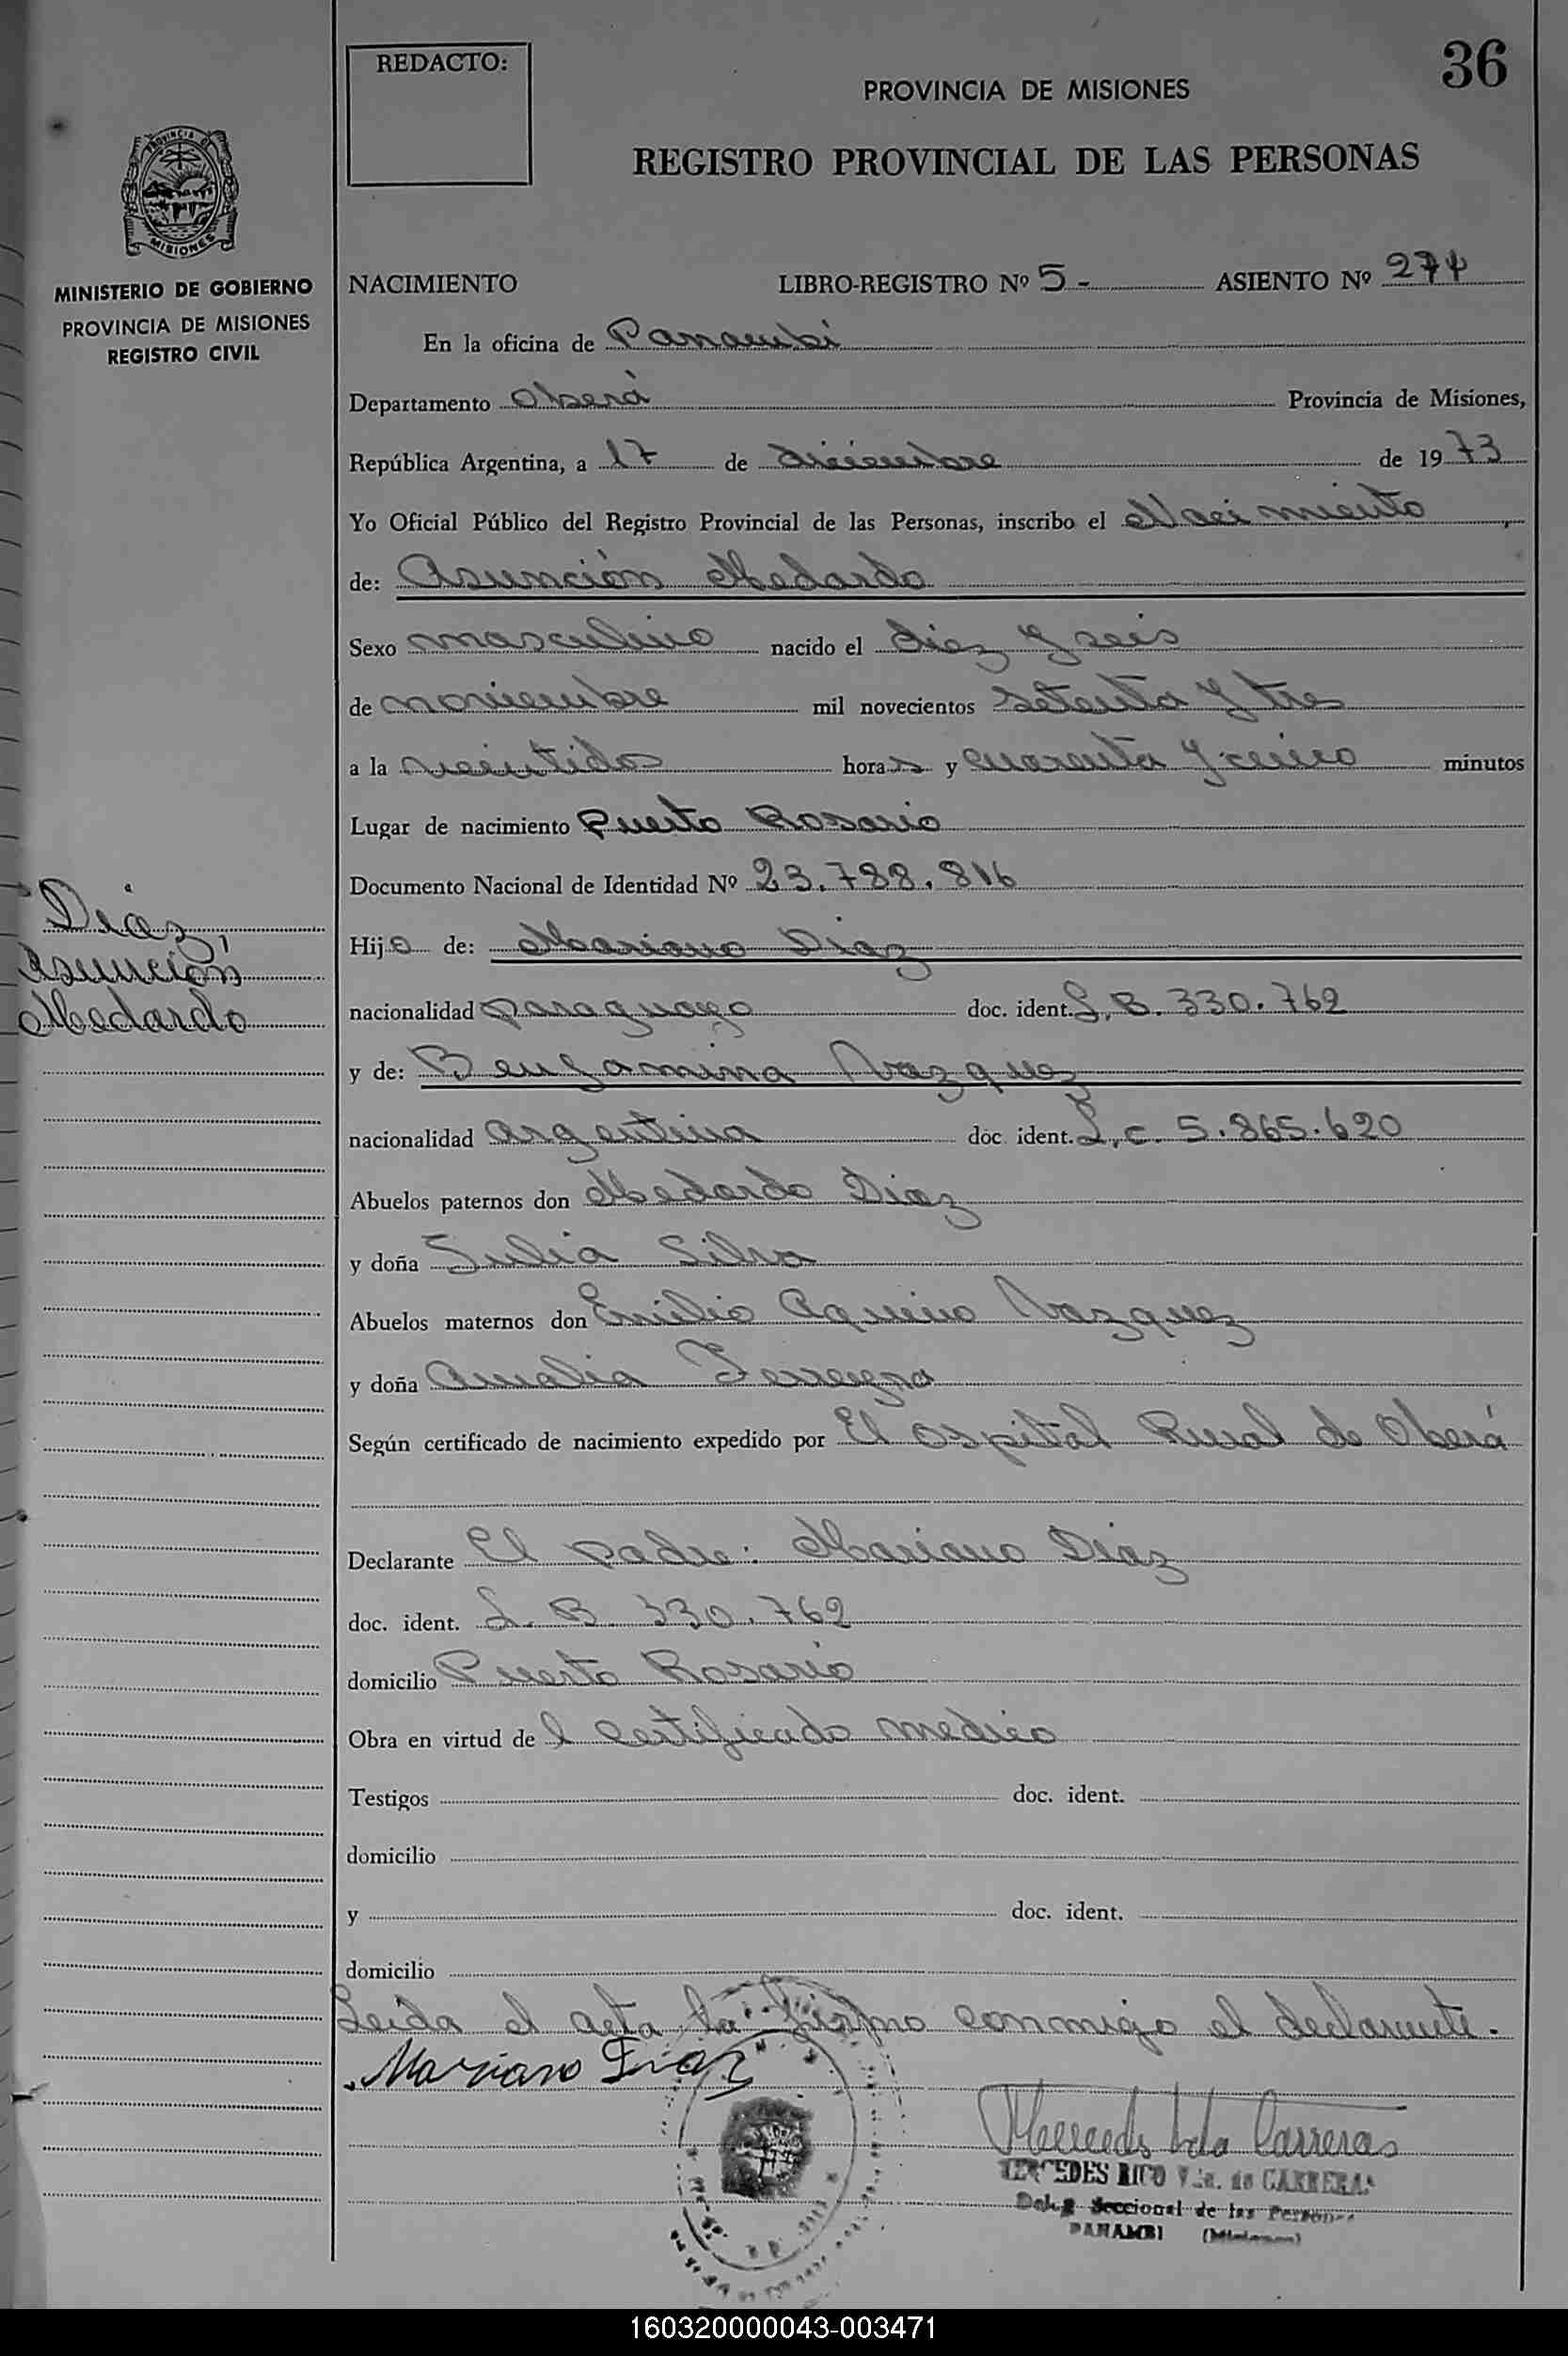 36
REDACTO:
PROVINCIA DE MISIONES
REGISTRO PROVINCIAL DE LAS PERSONAS
PROVINCIA DE
MISIONES
MINISTERIO DE GOBIERNO
PROVINCIA DE MISIONES
REGISTRO CIVIL
NACIMIENTO LIBRO-REGISTRO Nº 5- ASIENTO Nº 274
En la oficina de Panambi
Departamento Oberá Provincia de Misiones,
República Argentina, a 17 de diciembre de 1973
Yo Oficial Público del Registro Provincial de las Personas, inscribo el Nacimiento,
de: Asunción Medardo
Sexo masculino nacido el diez y seis
de noviembre mil novecientos setenta y tres
a la veintidos horas y cuarenta y cinco minutos
Lugar de nacimiento Puerto Rosario
Documento Nacional de Identidad Nº 23.788.816
Diaz,
Asunción
Medardo
Hijo de: Mariano Diaz
nacionalidad paraguayo doc. ident. L.B. 330.762
y de: Benjamina Vazquez
nacionalidad argentina doc ident. L.c. 5.865.620
Abuelos paternos don Medardo Diaz
y doña Julia Silva
Abuelos maternos don Emilio Aquino Vazquez
y doña Amalia Ferreyra
Según certificado de nacimiento expedido por El Ospital Rural de Oberá
Declarante El padre: Mariano Diaz
doc. ident. L. B. 330.762
domicilio Puerto Rosario
Obra en virtud de l certificado medico
Testigos doc. ident.
domicilio
y doc. ident.
domicilio
Leida el acta la firmo conmigo el declarante.
Mariano Diaz
Mercedes Vda Carreras
MERCEDES RICO Vda. de CARRERAS
Deleg Seccional de las Personas
PANAMBI (Misiones)
160320000043-003471